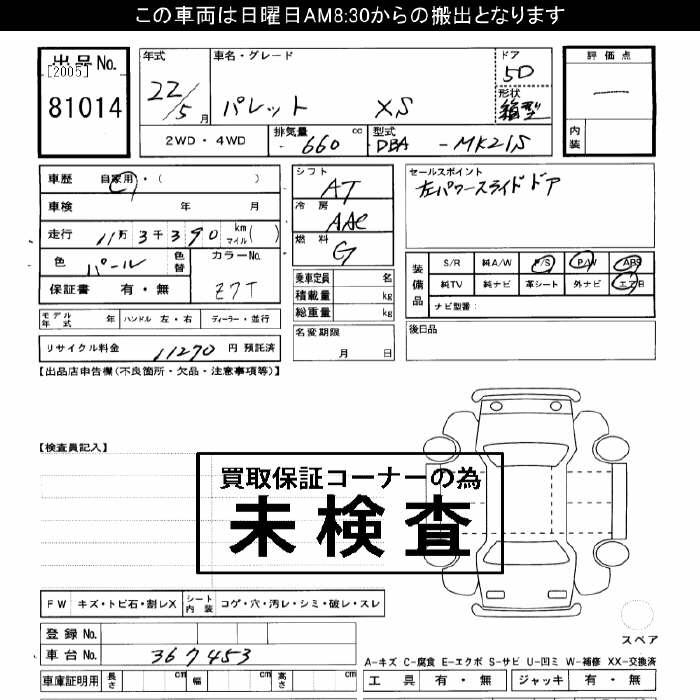 この車両は日曜日AM8:30からの搬出となります
出品No.
[2005]
81014
年式 22/5月
車名・グレード パレット XS
ドア 5D
形状 箱型
評価点 —
内装
2WD・4WD
排気量 660 cc
型式 DBA-MK21S
車歴 自家用・( )
車検 年 月
走行 11万3千390 km マイル( )
色 パール 色替
カラーNo. Z7T
保証書 有・無
シフト AT
冷房 AAC
燃料 G
セールスポイント
左パワースライドドア
乗車定員 名
積載量 kg
総重量 kg
装備品
S/R 純A/W P/S P/W ABS
純TV 純ナビ 革シート 外ナビ エアB
ナビ型番:
モデル年式 年 ハンドル 左・右 ディーラー・並行
名変期限 月 日
後日品
リサイクル料金 11270 円 預託済
【出品店申告欄(不良箇所・欠品・注意事項等)】
【検査員記入】
買取保証コーナーの為
未検査
FW キズ・トビ石・割レX
シート内装 コゲ・穴・汚レ・シミ・破レ・スレ
登録No.
車台No. 367453
スペア
A-キズ C-腐食 E-エクボ S-サビ U-凹ミ W-補修 XX-交換済
車庫証明用 長さ cm 幅 cm 高さ cm
工具 有・無 ジャッキ 有・無